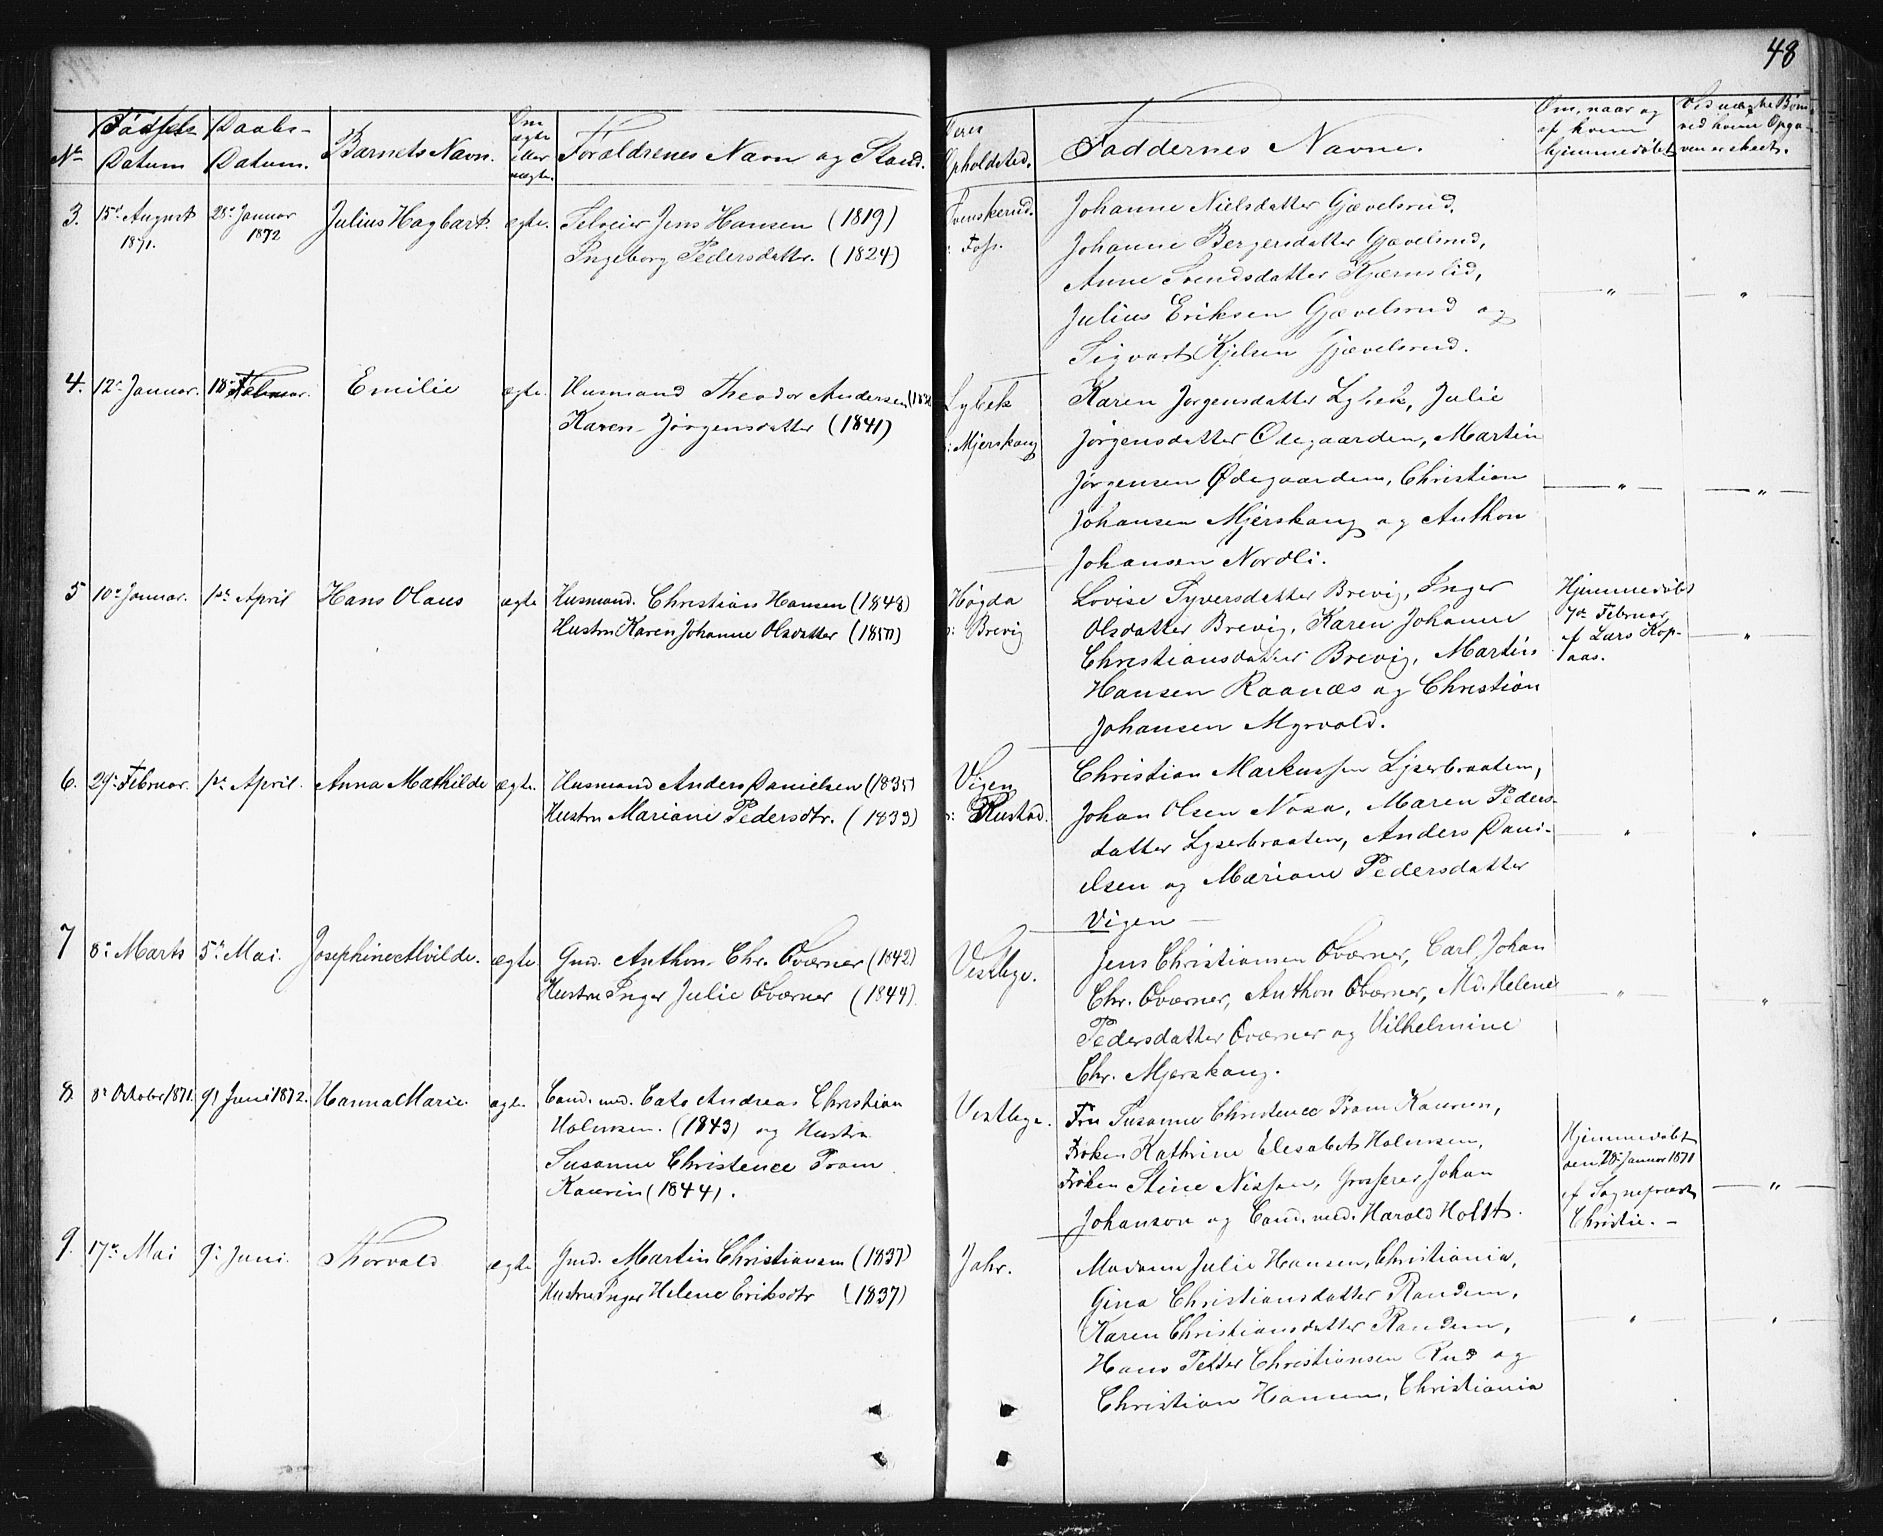 48
No Fødsels Datum
Daabs-Datum.
Barnets Navn.
Om ægte eller uægte.
Forældrenes Navn og Stand.
Deres Opholdsted.
Faddernes Navne.
Om, naar og af hvem hjemmedøbt
Ved uægte Børn, ved hvem Opga-
ven er skeet.
3. 15de August 1871. 28de Januar 1872 Julius Hagbart. ægte. Selveier Jens Hansen (1819)
Ingeborg Pedersdatter. (1824)
Svenskerud. u: Foss.
Johanne Nielsdatter Gjævelsrud,
Johanne Bergersdatter Gjævelsrud,
Anne Svendsdatter Kjærnslid,
Julius Eriksen Gjævelsrud og
Sigvart Kjelsen Gjævelsrud.
— " — — " —
4. 12te Januar. 18de Februar. Emilie ægte. Husmand Theodor Andersen
Karen Jørgensdatter (1841)
Lybek u: Mjerskaug
Karen Jørgensdatter Lybek, Julie
Jørgensdatter Ødegaarden, Martin
Jørgensen Ødegaarden, Christian
Johansen Mjerskaug og Anthon
Johansen Nordli.
— " — — " —
5 10de Januar. 1ste April Hans Olaus ægte Husmand. Christian Hansen (1848)
Hustru Karen Johanne Olsdatter (1850)
Høgda u: Brevig
Lovise Syversdatter Brevig, Inger
Olsdatter Brevig, Karen Johanne
Christiansdatter Brevig, Martin
Hansen Raanæs og Christian
Johansen Myrvold.
Hjemmedøbt
7de Februar
af Lars Kop-
aas.
— " —
6. 29de Februar. 1ste April. Anna Mathilde ægte. Husmand Anders Danielsen (1835)
Hustru Mariane Pedersdtr. (1833)
Vigen u: Rustad.
Christian Markussen Lyserbraaten,
Johan Olsen Nosa, Maren Peders-
datter Lyserbraaten, Anders Dani-
elsen og Mariane Pedersdatter
Vigen —
— " — "
7 8de Marts 5te Mai. Josephine Alvilde. ægte Gmd. Anthon Chr. Oværner (1842)
Hustru Inger Julie Oværner (1844).
Vestbye.
Jens Christiansen Oværner, Carl Johan
Chr. Oværner, Anthon Oværner, Md. Helene
Pedersdatter Oværner og Vilhelmine
Chr. Mjerskaug.
— " — "
8 8de Octobr 1871. 9de Juni 1872. Hanna Marie. ægte. Cand. med. Cato Andreas Christian
Holmsen. (1843) og Hustru
Susanne Christence Pram
Kaurin (1844).
Vestbye.
Fru Susanne Christence Pram Kaurin,
Frøken Kathrine Elesabet Holmsen,
Frøken Stine Nissen, Grosserer Johan
Johanson og Cand. med. Harald Holst.
Hjemmedøbt
den 28de Januar 1871
af Sognepræst
Christie. —
— " —
9. 17de Mai 9de Juni. Thorvald ægte Gmd. Martin Christiansen (1837)
Hustru Inger Helene Eriksdtr (1837)
Jahr.
Madame Julie Hansen, Christiania,
Gina Christiansdatter Randem,
Karen Christiansdatter Randem,
Hans Petter Christiansen Rud og
Christian Hansen, Christiania
— " — "